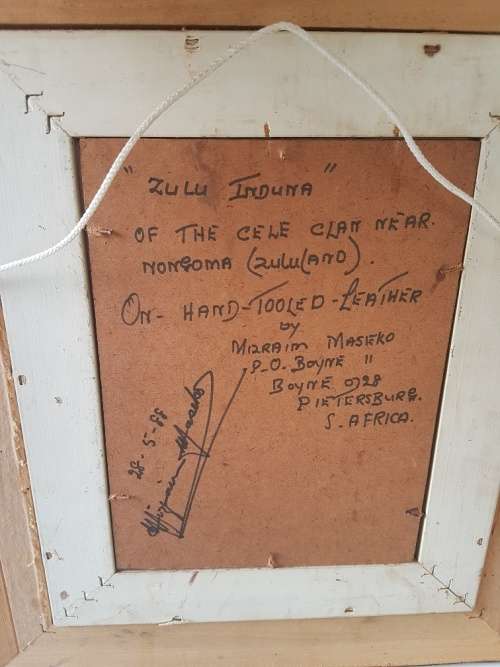 "ZULU INDUNA"
OF THE CELE CLAN NEAR.
NONGOMA (ZULULAND).
ON- HAND-TOOLED-LEATHER
by
MIZRAIM MASEKO
P.O. BOYNE "
BOYNE 0728
PIETERSBURG.
S. AFRICA.
28-5-88
Mizraim Maseko